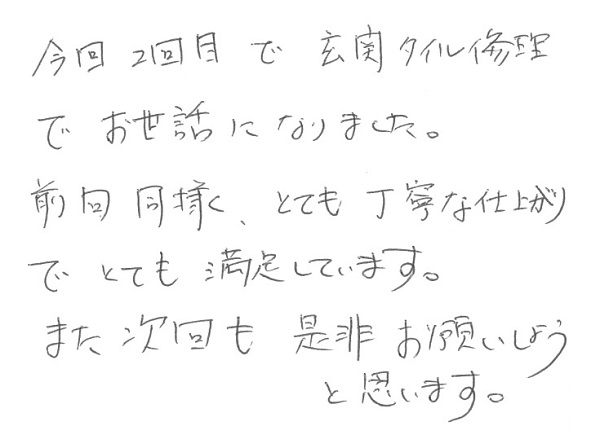 今回2回目で玄関タイル修理
でお世話になりました。
前回同様く、とても丁寧な仕上がり
でとても満足しています。
また次回も是非お願いしよう
と思います。